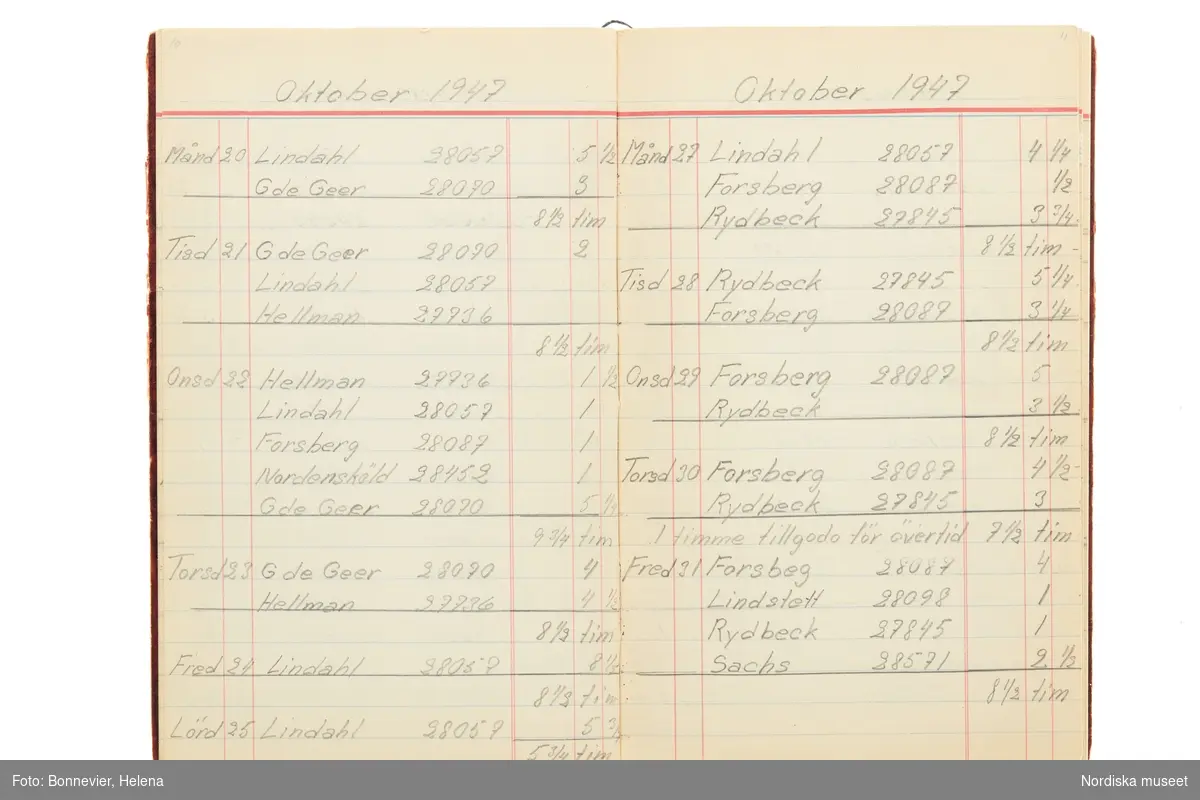 10
Oktober 1947
Månd 20 Lindahl 28057 5 1/2
G de Geer 28070 3
8 1/2 tim
Tisd 21 G de Geer 28070 2
Lindahl 28057
Hellman 27736
8 1/2 tim
Onsd 22 Hellman 27736 1 1/2
Lindahl 28057 1
Forsberg 28087 1
Nordensköld 28452 1
G de Geer 28070 5 1/4
9 3/4 tim
Torsd 23 G de Geer 28070 4
Hellman 27736 4 1/2
8 1/2 tim
Fred 24 Lindahl 28057 8 1/2
8 1/2 tim
Lörd 25 Lindahl 28057 5 3/4
5 3/4 tim
11
Oktober 1947
Månd 27 Lindahl 28057 4 1/4
Forsberg 28087 1/2
Rydbeck 27845 3 3/4
8 1/2 tim
Tisd 28 Rydbeck 27845 5 1/4
Forsberg 28087 3 1/4
8 1/2 tim
Onsd 29 Forsberg 28087 5
Rydbeck 3 1/2
8 1/2 tim
Torsd 30 Forsberg 28087 4 1/2
Rydbeck 27845 3
1 timme tillgodo för övertid 7 1/2 tim
Fred 31 Forsbeg 28087 4
Lindstett 28098 1
Rydbeck 27845 1
Sachs 28571 2 1/2
8 1/2 tim
Foto: Bonnevier, Helena
Nordiska museet